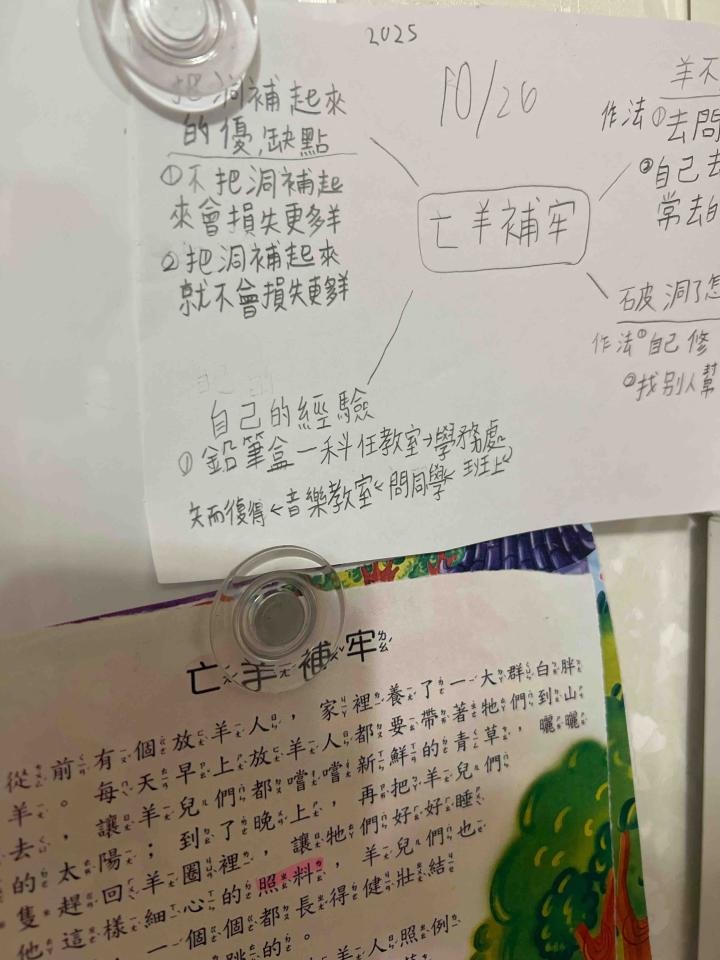 2025
10/26
把洞補起來
的優,缺點
①不把洞補起
來會損失更多羊
②把洞補起來
就不會損失更多羊
亡羊補牢
羊不
作法①去問
②自己去
常去的
破洞了怎
作法①自己修
②找別人幫
自己的經驗
①鉛筆盒一科任教室→學務處
失而復得←音樂教室←問同學←班上
亡羊補牢
從前有個放羊人,家裡養了一大群白胖
羊。每天早上放羊人都要帶著牠們到山
去,讓羊兒們都嚐嚐新鮮的青草,曬曬
的太陽;到了晚上,再把羊兒們
隻趕回羊圈裡,讓牠們好好睡
他這樣細心的照料,羊兒們也
一個個都長得健壯結
跳的。
羊人照例